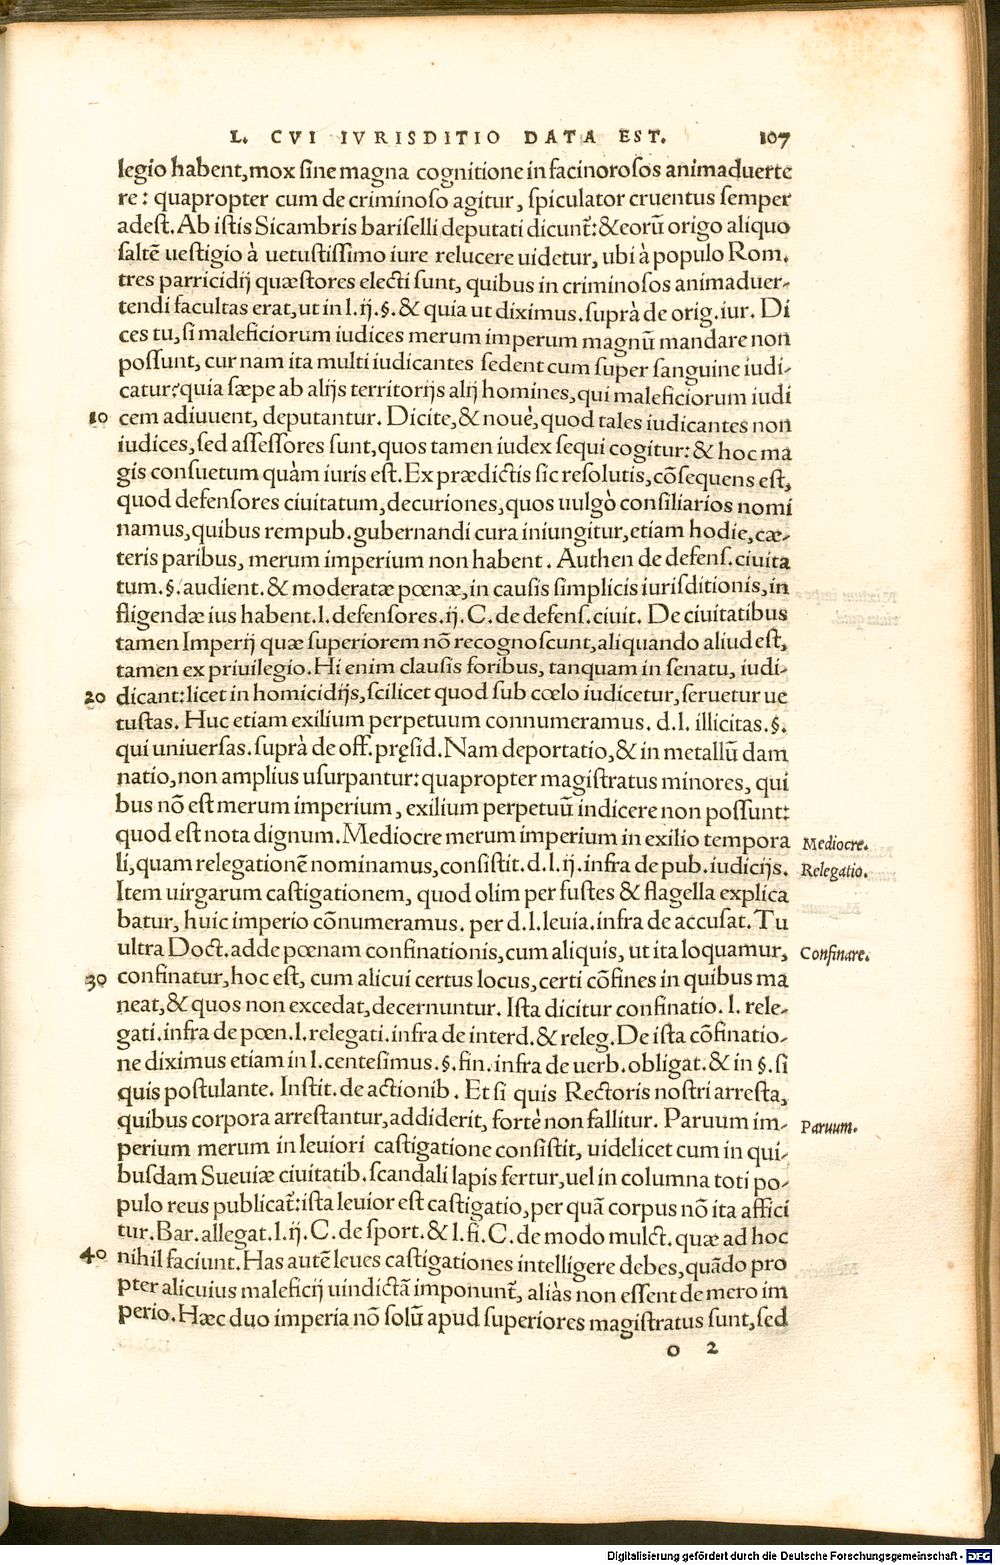 L. CVI IVRISDITIO DATA EST. 107
legio habent, mox sine magna cognitione in facinorosos animaduerte
re: quapropter cum de criminoso agitur, spiculator cruentus semper
adest. Ab istis Sicambris bariselli deputati dicunt̃: & eorũ origo aliquo
saltẽ uestigio à uetustissimo iure relucere uidetur, ubi à populo Rom.
tres parricidij quæstores electi sunt, quibus in criminosos animaduer-
tendi facultas erat, ut in l. ij. §. & quia ut diximus. suprà de orig. iur. Di
ces tu, si maleficiorum iudices merum imperum magnũ mandare non
possunt, cur nam ita multi iudicantes sedent cum super sanguine iudi-
catur? quia sæpe ab alijs territorijs alij homines, qui maleficiorum iudi
10 cem adiuuent, deputantur. Dicite, & nouè, quod tales iudicantes non
iudices, sed assessores sunt, quos tamen iudex sequi cogitur: & hoc ma
gis consuetum quàm iuris est. Ex prædictis sic resolutis, cõsequens est,
quod defensores ciuitatum, decuriones, quos uulgò consiliarios nomi
namus, quibus rempub. gubernandi cura iniungitur, etiam hodie, cæ-
teris paribus, merum imperium non habent. Authen de defens. ciuita
tum. §. audient. & moderatæ pœnæ, in causis simplicis iurisditionis, in
fligendæ ius habent. l. defensores. ij. C. de defens. ciuit. De ciuitatibus
tamen Imperij quæ superiorem nõ recognoscunt, aliquando aliud est,
tamen ex priuilegio. Hi enim clausis foribus, tanquam in senatu, iudi-
20 dicant: licet in homicidijs, scilicet quod sub cœlo iudicetur, seruetur ue
tustas. Huc etiam exilium perpetuum connumeramus. d. l. illicitas. §.
qui uniuersas. suprà de off. pręsid. Nam deportatio, & in metallũ dam
natio, non amplius usurpantur: quapropter magistratus minores, qui
bus nõ est merum imperium, exilium perpetuũ indicere non possunt:
quod est nota dignum. Mediocre merum imperium in exilio tempora Mediocre.
li, quam relegationẽ nominamus, consistit. d. l. ij. infra de pub. iudicijs. Relegatio.
Item uirgarum castigationem, quod olim per fustes & flagella explica
batur, huic imperio cõnumeramus. per d. l. leuia. infra de accusat. Tu
ultra Doct. adde pœnam confinationis, cum aliquis, ut ita loquamur, Confinare.
30 confinatur, hoc est, cum alicui certus locus, certi cõfines in quibus ma
neat, & quos non excedat, decernuntur. Ista dicitur confinatio. l. rele-
gati. infra de pœn. l. relegati. infra de interd. & releg. De ista cõfinatio-
ne diximus etiam in l. centesimus. §. fin. infra de uerb. obligat. & in §. si
quis postulante. Instit. de actionib. Et si quis Rectoris nostri arresta,
quibus corpora arrestantur, addiderit, fortè non fallitur. Paruum im- Paruum.
perium merum in leuiori castigatione consistit, uidelicet cum in qui-
busdam Sueuiæ ciuitatib. scandali lapis fertur, uel in columna toti po-
pulo reus publicat̃: ista leuior est castigatio, per quã corpus nõ ita affici
tur. Bar. allegat. l. ij. C. de sport. & l. fi. C. de modo mulct. quæ ad hoc
40 nihil faciunt. Has autẽ leues castigationes intelligere debes, quãdo pro
pter alicuius maleficij uindictã imponunt̃, aliàs non essent de mero im
perio. Hæc duo imperia nõ solũ apud superiores magistratus sunt, sed
o 2
Digitalisierung gefördert durch die Deutsche Forschungsgemeinschaft - DFG